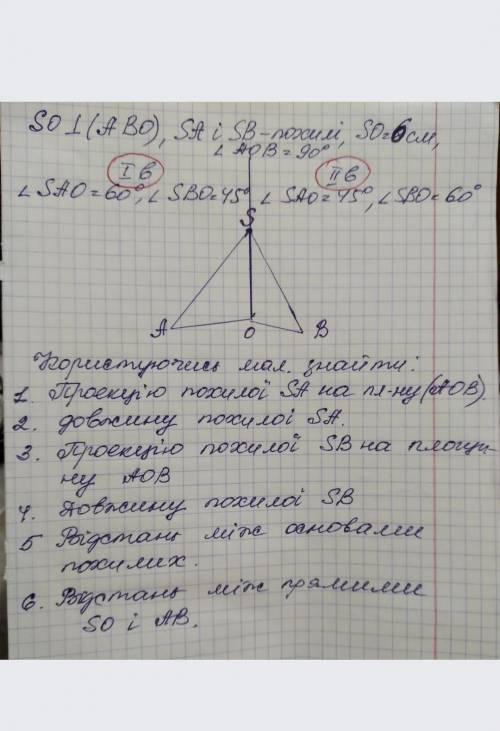 SO ⊥ (ABO), SA і SB – похилі, SO = 6 см,
∠AOB = 90°
I в
II в
∠SAO = 60°, ∠SBO = 45°
∠SAO = 45°, ∠SBO = 60°
S
A
O
B
Користуючись мал. знайти:
1. Проекцію похилої SA на пл-ну (AOB).
2. довжину похилої SA.
3. Проекцію похилої SB на площи-
ну AOB
4. Довжину похилої SB
5 Відстань між основами
похилих.
6. Відстань між прямими
SO і AB.